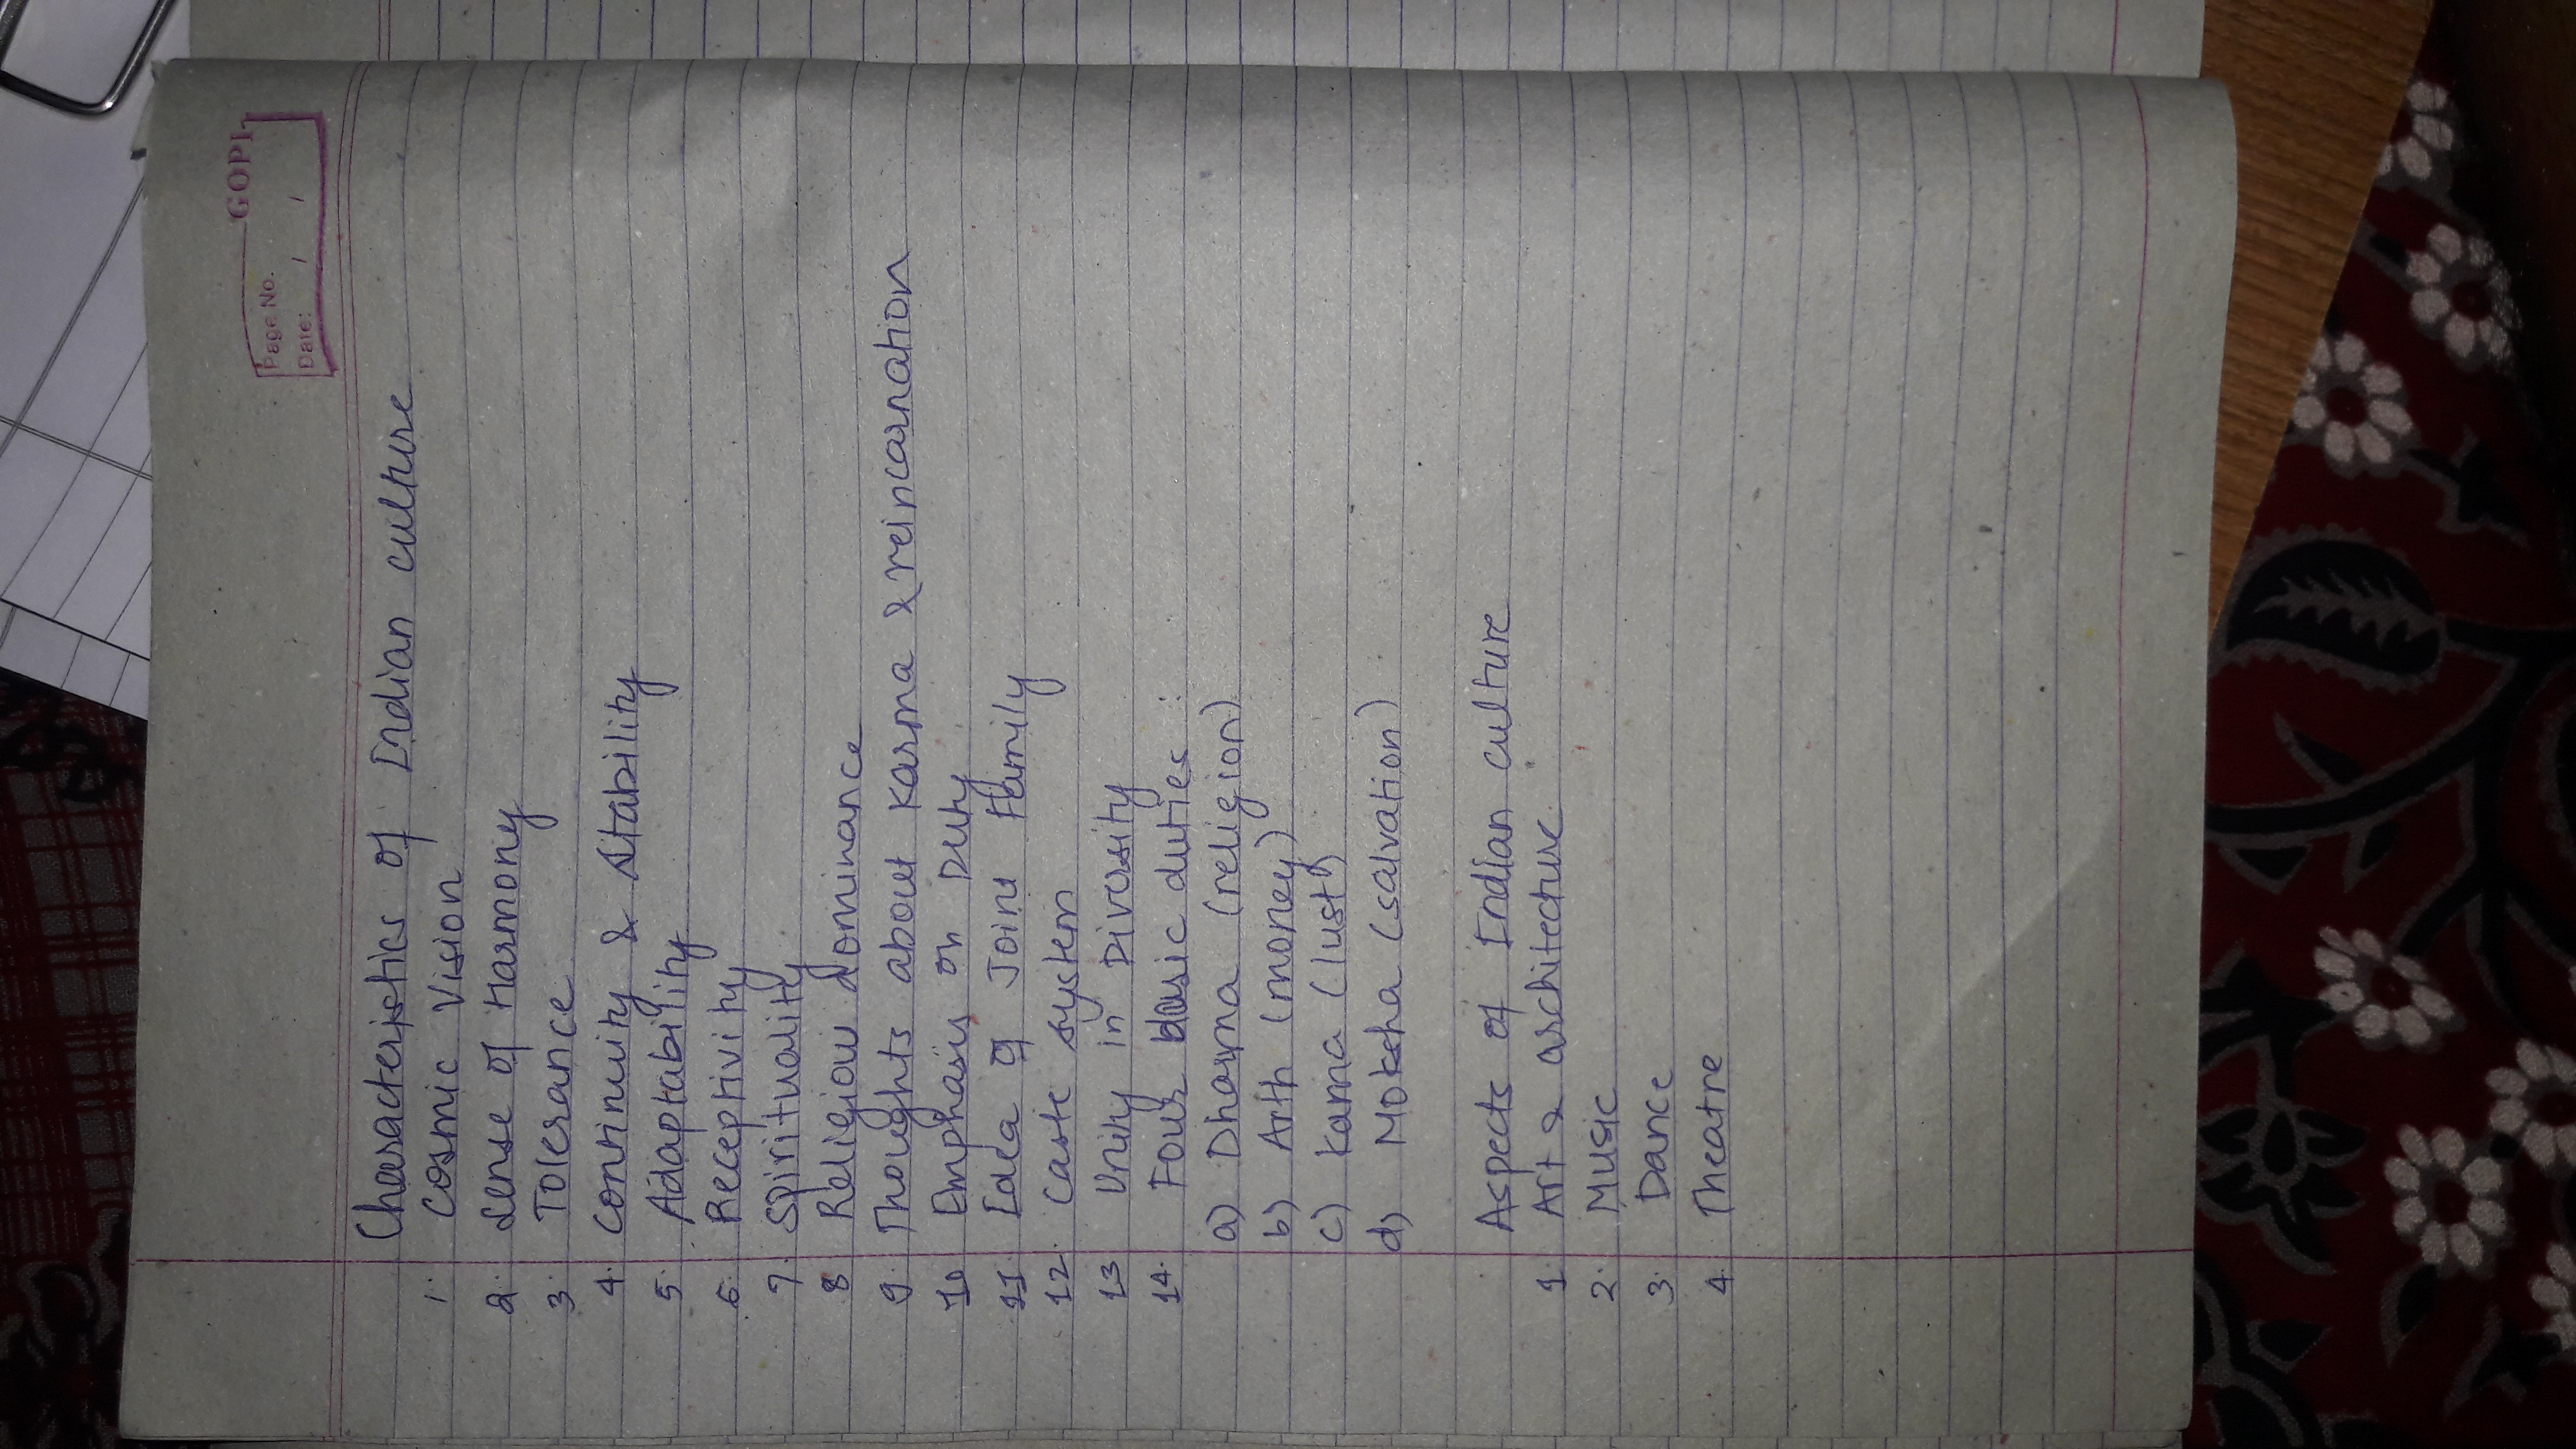 GOPI
Page No.
Date: / /
Characteristics of Indian culture
1. Cosmic Vision
2. Sense of Harmony
3. Tolerance
4. Continuity & Stability
5. Adaptability
6. Receptivity
7. Spirituality
8 Religious dominance
9. Thoughts about Karma & reincarnation
10 Emphasis on Duty
11 Idea of Joint Family
12. Caste system
13 Unity in Diversity
14. Four basic duties :
a) Dharma (religion)
b) Arth (money)
c) Kama (lust)
d) Moksha (salvation)
Aspects of Indian culture
1. Art & architecture.
2. Music
3. Dance
4. Theatre